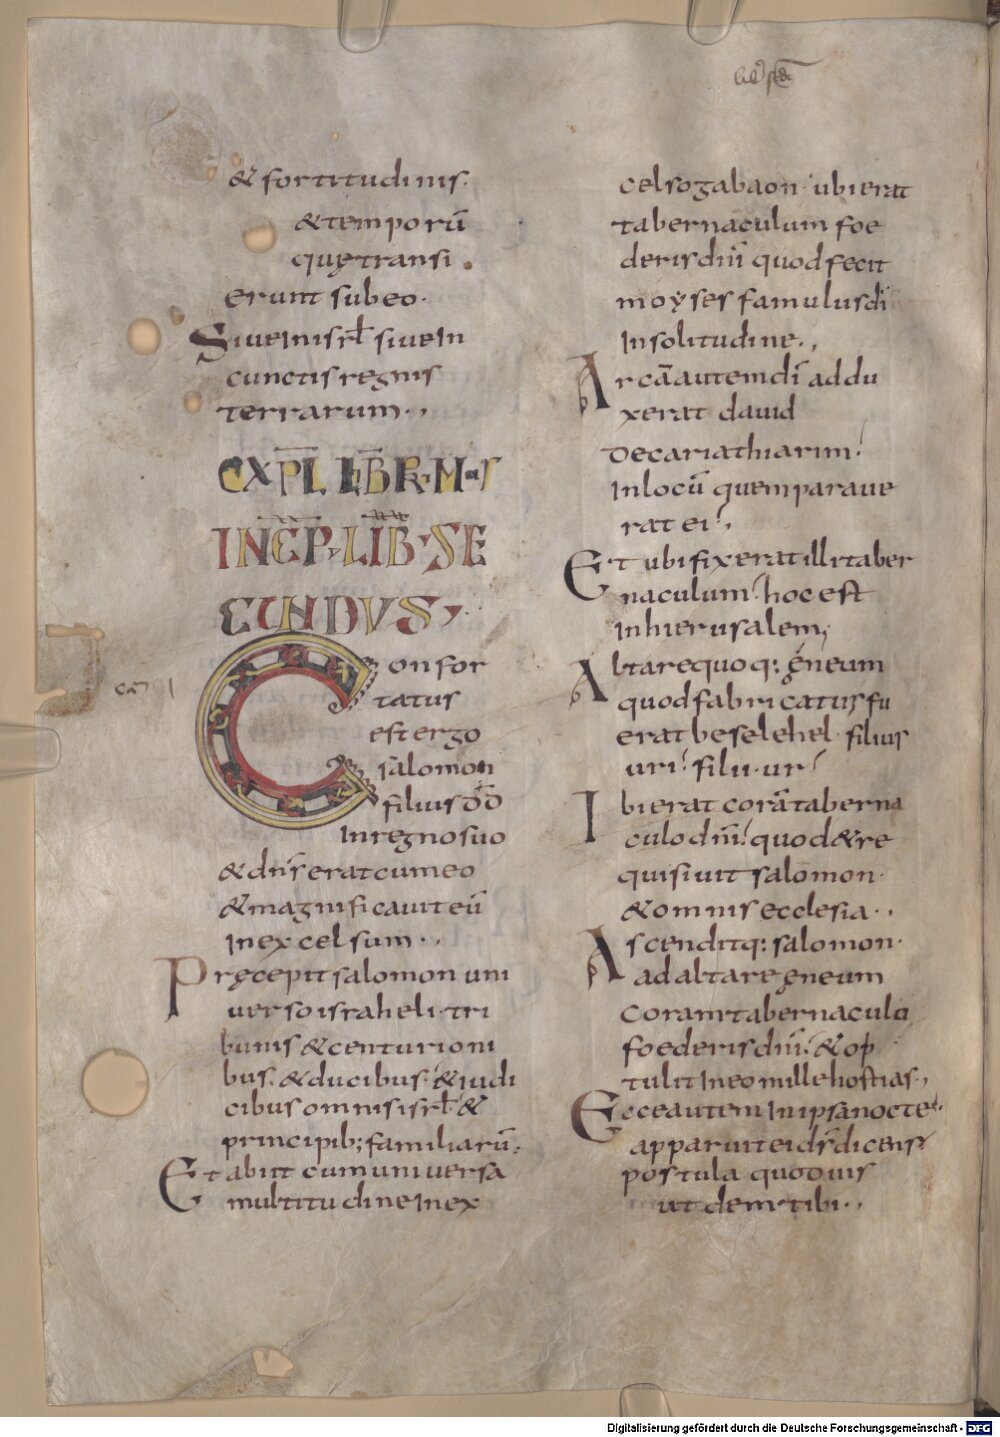 libscd
& fortitudinis.
& temporū
quę transi
erunt sub eo.
Siue in isrl siue in
cunctis regnis
terrarum.,
EXPL LIBR· PRIM·
INCEP· LIB· SE
CUNDVS,
Confor
tatus
est ergo
salomon
filius dd
In regno suo
& dns erat cum eo
& magnificauit eū
In excelsum.,
Pręcepit salomon uni
uerso israheli. tri
bunis & centurioni
bus. & ducibus. & iudi
cibus omnis isrl. &
principib; familiarū.,
Et abiit cum uniuersa
multitudine in ex
celso gabaon. ubi erat
tabernaculum foe
deris dni quod fecit
moyses famulus di
In solitudine.,
Arcā autem di addu
xerat dauid
De cariathiarim.
In locū quem paraue
rat ei.,
Et ubi fixerat illi taber
naculum. hoc est
In hierusalem;
Altare quoq: ęneum
quod fabricatus fu
erat beselehel. filius
uri. filii. ur.
Ibi erat corā taberna
culo dni. quod & re
quisiuit salomon.
& omnis ecclesia.,
Ascenditq: salomon.
ad altare ęneum
coram tabernaculo
foederis dni. & op
tulit In eo mille hostias.,
Ecce autem In ipsa nocte.
apparuit ei ds dicens.
postula quod uis
ut dem tibi.,
Digitalisierung gefördert durch die Deutsche Forschungsgemeinschaft - DFG